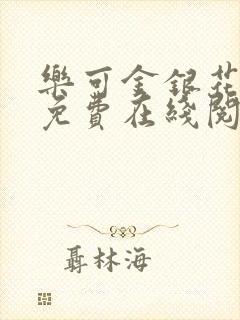 樂可金銀花
免費在綫閱
聶林海